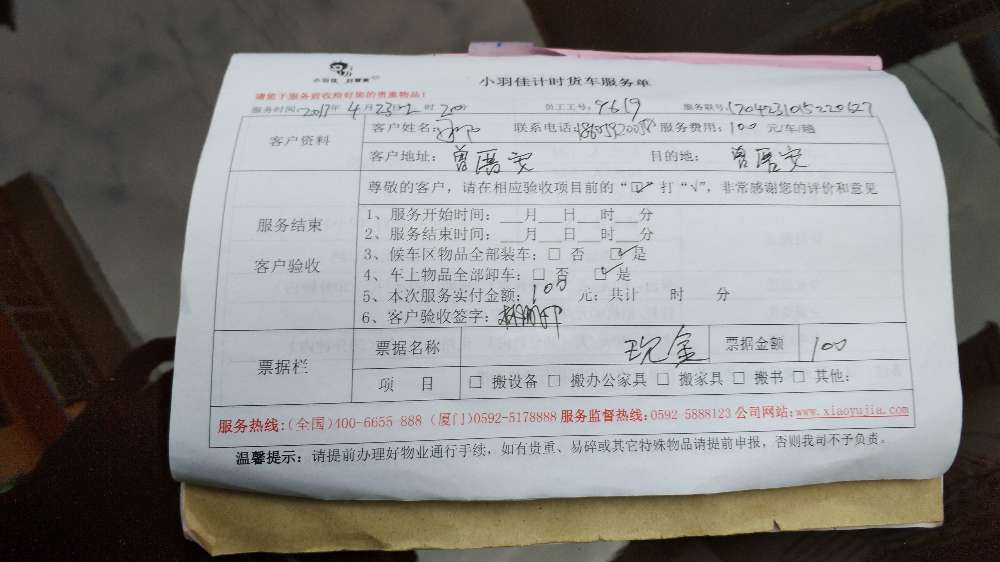 小羽佳 好管家
小羽佳计时货车服务单
请您于服务前收给好您的贵重物品!
服务时间:2017年4月23日12时20分 员工工号:9619 服务联号:
客户资料
客户姓名: 联系电话: 服务费用:100 元/车/趟
客户地址:曾厝安 目的地:曾厝安
服务结束
客户验收
尊敬的客户,请在相应验收项目前的“☑”打“√”,非常感谢您的评价和意见
1、服务开始时间:___月___日___时___分
2、服务结束时间:___月___日___时___分
3、候车区物品全部装车:□ 否 ☑是
4、车上物品全部卸车:□ 否 ☑是
5、本次服务实付金额:100 元;共计 时 分
6、客户验收签字:
票据栏
票据名称 现金 票据金额 100
项 目 □ 搬设备 □ 搬办公家具 □ 搬家具 □ 搬书 □ 其他:
服务热线:(全国)400-6655 888 (厦门)0592-5178888 服务监督热线:0592-5888123 公司网站:www.xiaoyujia.com
温馨提示:请提前办理好物业通行手续,如有贵重、易碎或其它特殊物品请提前申报,否则我司不予负责。